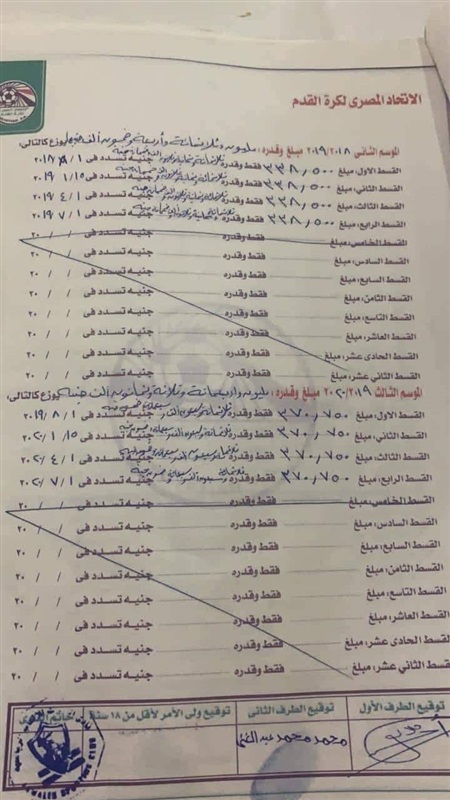 الاتحاد المصرى لكرة القدم
الموسم الثانى ٢٠١٩/٢٠١٨ مبلغ وقدره: مليون وثلاثمائة وأربعة وخمسون ألف جنيها يوزع كالتالى:
القسط الأول، مبلغ ٣٣٨,٥٠٠ فقط وقدره جنيه تسدد فى ٢٠١٨/٨/١
القسط الثانى، مبلغ ٣٣٨,٥٠٠ فقط وقدره جنيه تسدد فى ٢٠١٩/١/١٥
القسط الثالث، مبلغ ٣٣٨,٥٠٠ فقط وقدره جنيه تسدد فى ٢٠١٩/٤/١
القسط الرابع، مبلغ ٣٣٨,٥٠٠ فقط وقدره جنيه تسدد فى ٢٠١٩/٧/١
القسط الخامس، مبلغ فقط وقدره جنيه تسدد فى / / ٢٠
القسط السادس، مبلغ فقط وقدره جنيه تسدد فى / / ٢٠
القسط السابع، مبلغ فقط وقدره جنيه تسدد فى / / ٢٠
القسط الثامن، مبلغ فقط وقدره جنيه تسدد فى / / ٢٠
القسط التاسع، مبلغ فقط وقدره جنيه تسدد فى / / ٢٠
القسط العاشر، مبلغ فقط وقدره جنيه تسدد فى / / ٢٠
القسط الحادى عشر، مبلغ فقط وقدره جنيه تسدد فى / / ٢٠
القسط الثانى عشر، مبلغ فقط وقدره جنيه تسدد فى / / ٢٠
الموسم الثالث ٢٠٢٠/٢٠١٩ مبلغ وقدره: مليون وأربعمائة وثلاثة وثمانون ألف جنيها يوزع كالتالى:
القسط الأول، مبلغ ٣٧٠,٧٥٠ فقط وقدره جنيه تسدد فى ٢٠١٩/٨/١
القسط الثانى، مبلغ ٣٧٠,٧٥٠ فقط وقدره جنيه تسدد فى ٢٠٢٠/١/١٥
القسط الثالث، مبلغ ٣٧٠,٧٥٠ فقط وقدره جنيه تسدد فى ٢٠٢٠/٤/١
القسط الرابع، مبلغ ٣٧٠,٧٥٠ فقط وقدره جنيه تسدد فى ٢٠٢٠/٧/١
القسط الخامس، مبلغ فقط وقدره جنيه تسدد فى / / ٢٠
القسط السادس، مبلغ فقط وقدره جنيه تسدد فى / / ٢٠
القسط السابع، مبلغ فقط وقدره جنيه تسدد فى / / ٢٠
القسط الثامن، مبلغ فقط وقدره جنيه تسدد فى / / ٢٠
القسط التاسع، مبلغ فقط وقدره جنيه تسدد فى / / ٢٠
القسط العاشر، مبلغ فقط وقدره جنيه تسدد فى / / ٢٠
القسط الحادى عشر، مبلغ فقط وقدره جنيه تسدد فى / / ٢٠
القسط الثانى عشر، مبلغ فقط وقدره جنيه تسدد فى / / ٢٠
توقيع الطرف الأول توقيع الطرف الثانى توقيع ولى الأمر لأقل من ١٨ سنة خاتم النادى
محمد محمد عبد الغنى